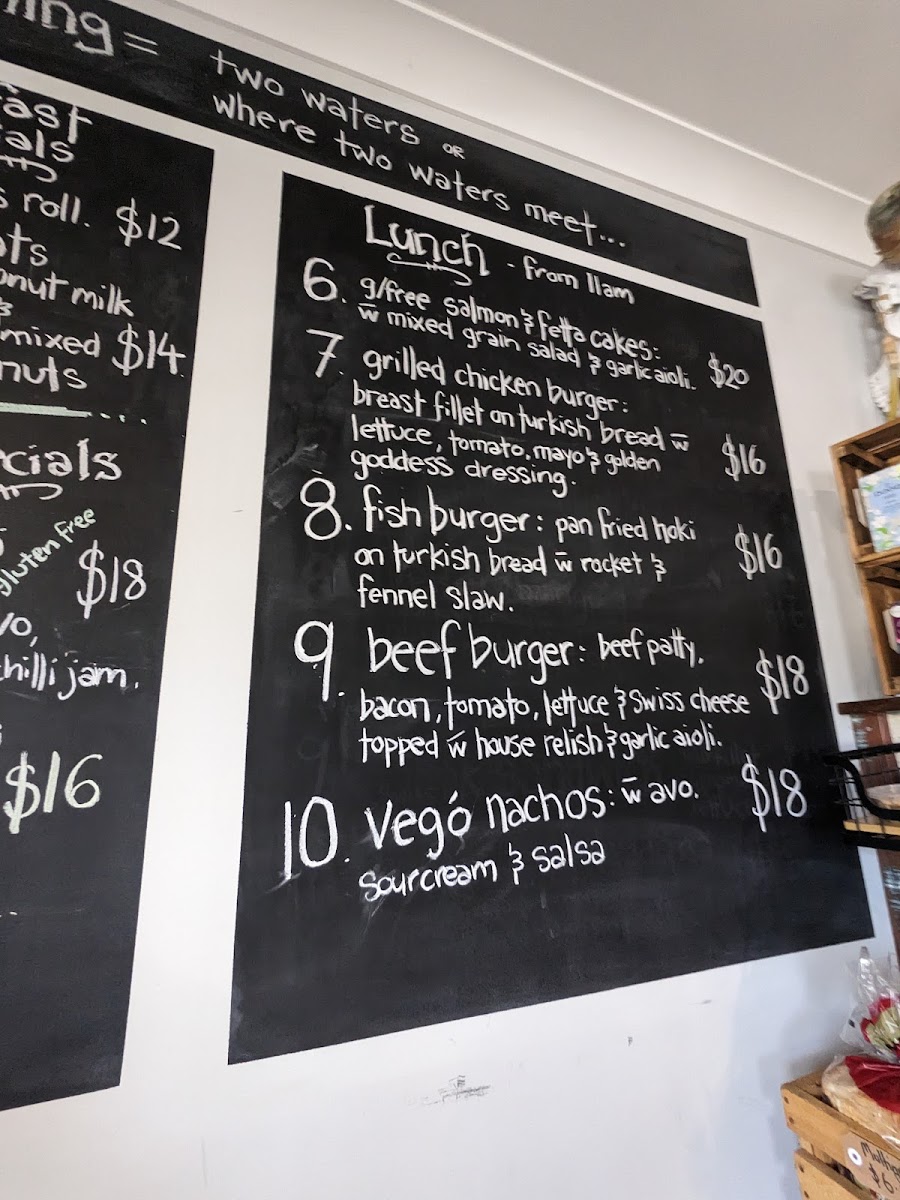 ing = two waters or
where two waters meet...
ast
ials
s roll. $12
ts
onut milk
&
mixed $14
nuts
cials
gluten free
$18
vo,
chilli jam.
$16
Lunch - from 11am
6. g/free salmon & fetta cakes:
w̄ mixed grain salad & garlic aioli. $20
7. grilled chicken burger:
breast fillet on turkish bread w̄
lettuce, tomato, mayo & golden $16
goddess dressing.
8. fish burger: pan fried hoki
on turkish bread w̄ rocket & $16
fennel slaw.
9. beef burger: beef patty, $18
bacon, tomato, lettuce & Swiss cheese
topped w̄ house relish & garlic aioli.
10. vegó nachos: w̄ avo. $18
sourcream & salsa
$6